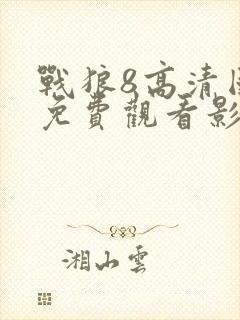 戰狼8高清
免費觀看影
湘山雲